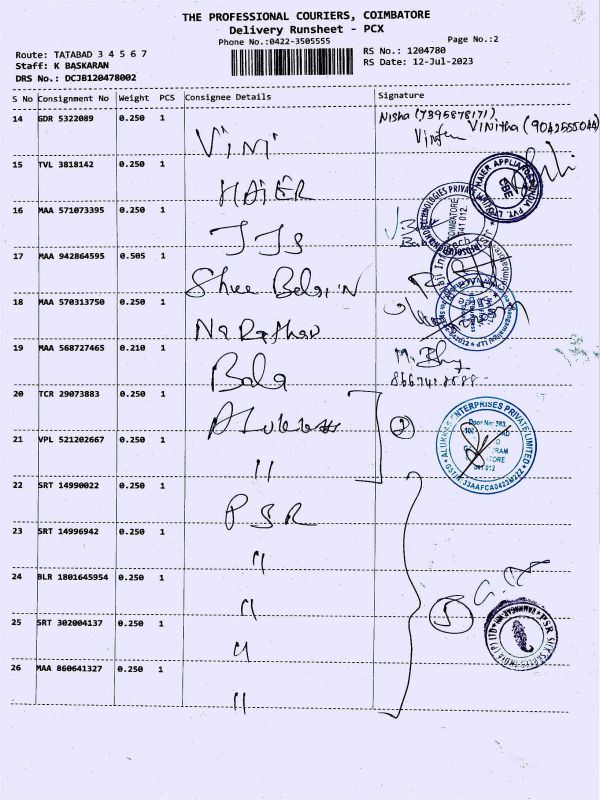 THE PROFESSIONAL COURIERS, COIMBATORE
Delivery Runsheet - PCX
Phone No.:0422-3505555
Page No.:2
Route: TATABAD 3 4 5 6 7
Staff: K BASKARAN
DRS No.: DCJB120478002
RS No.: 1204780
RS Date: 12-Jul-2023
S No Consignment No Weight PCS Consignee Details Signature
14 GDR 5322089 0.250 1 Vini Nisha (7395878171)
VINItha (9042555044)
15 TVL 3818142 0.250 1 HAIER
16 MAA 571073395 0.250 1 JJS
17 MAA 942864595 0.505 1 Shree
18 MAA 570313750 0.250 1
19 MAA 568727465 0.210 1 Bala
20 TCR 29073883 0.250 1 Alukkas 2
21 VPL 521202667 0.250 1 "
22 SRT 14990022 0.250 1 PSR
23 SRT 14996942 0.250 1 "
24 BLR 1801645954 0.250 1 "
25 SRT 302004137 0.250 1 " 5
26 MAA 860641327 0.250 1 "
HAIER APPLIANCES INDIA PVT. LTD
CBE
COIMBATORE
641 012.
ALUKKAS ENTERPRISES PRIVATE LIMITED
GSTIN 33AAFCA0423M2ZZ
641 012
PSR SILK SAREES INDIA (P) LTD